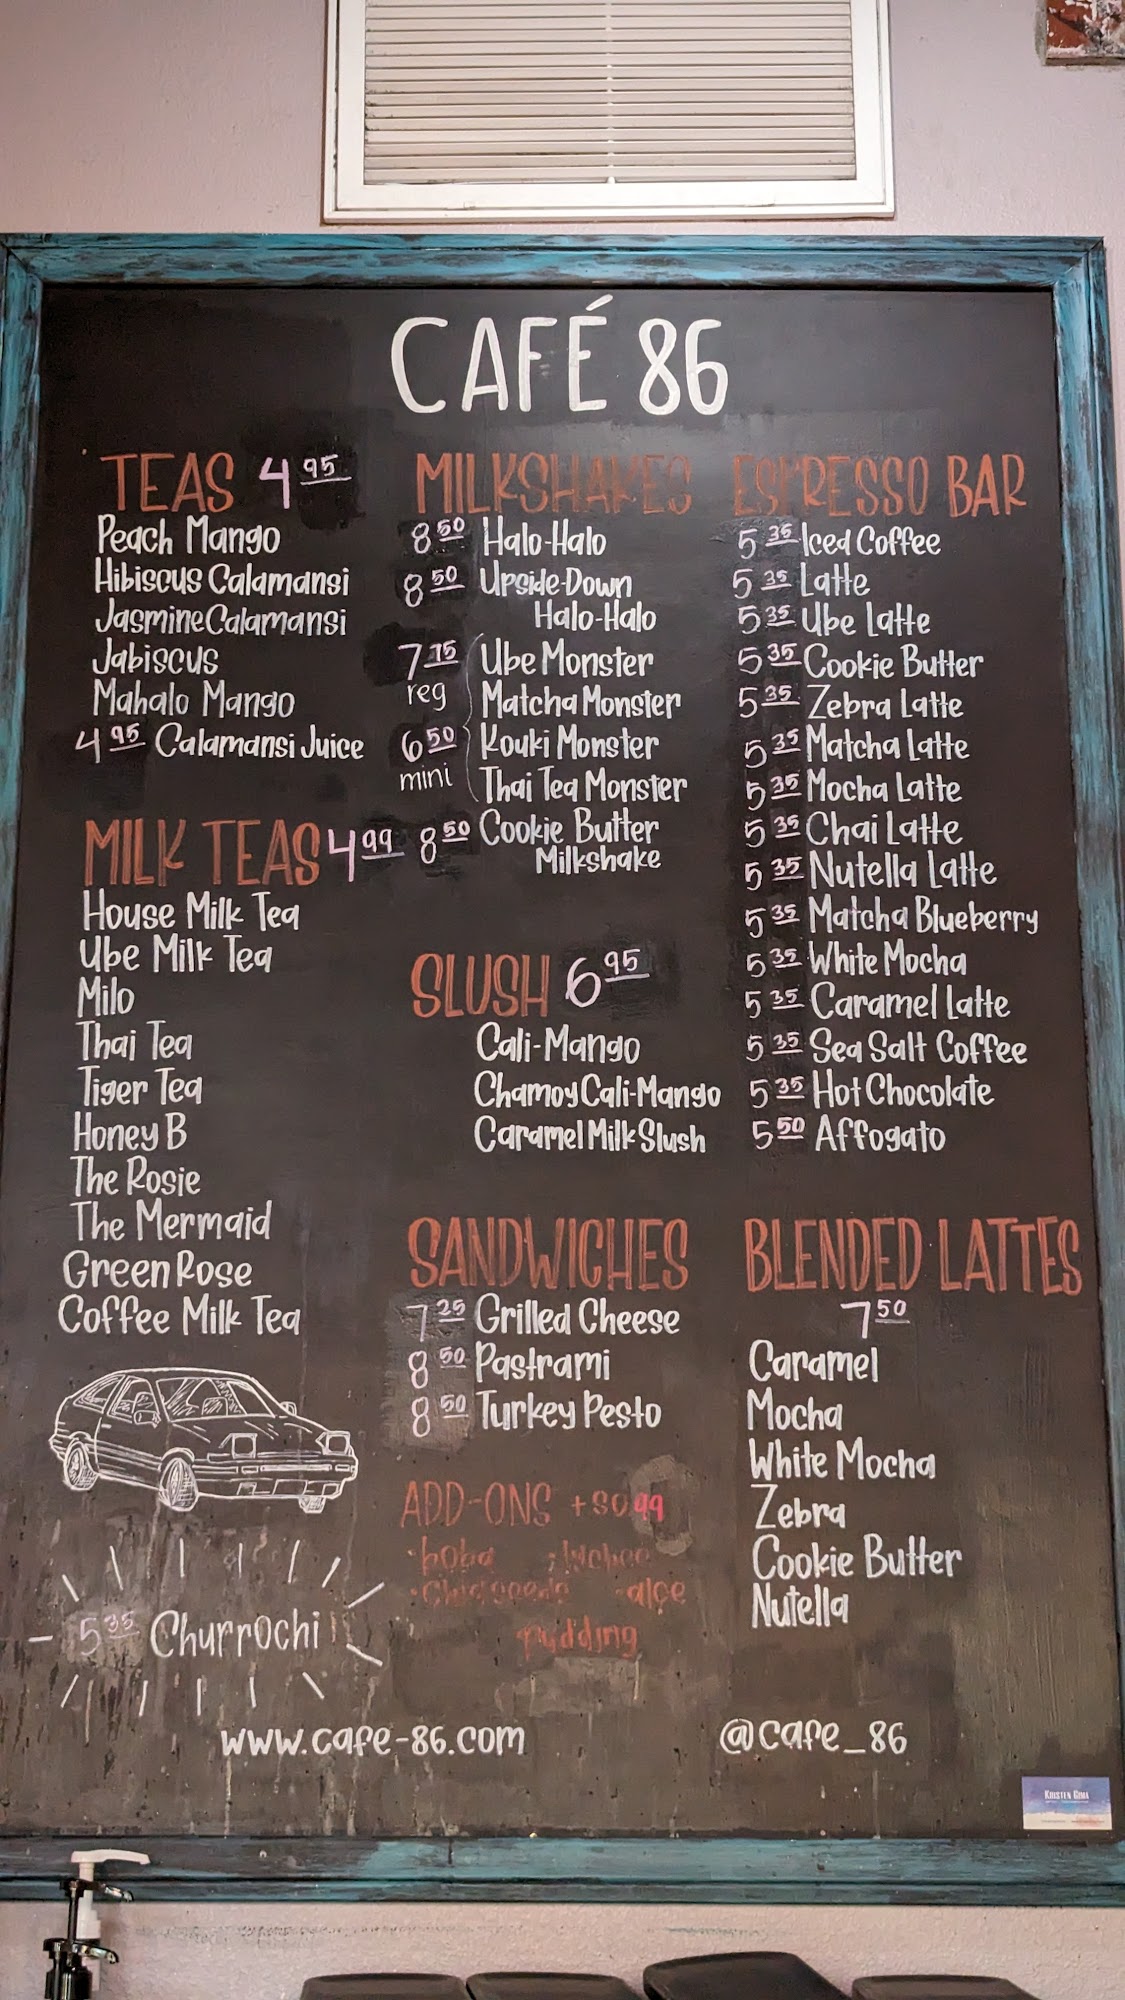 CAFÉ 86
TEAS 4.95
Peach Mango
Hibiscus Calamansi
Jasmine Calamansi
Jabiscus
Mahalo Mango
4.95 Calamansi Juice
MILK TEAS 4.99
House Milk Tea
Ube Milk Tea
Milo
Thai Tea
Tiger Tea
Honey B
The Rosie
The Mermaid
Green Rose
Coffee Milk Tea
5.35 Churrochi
MILKSHAKES
8.50 Halo-Halo
8.50 Upside-Down
Halo-Halo
7.75 Ube Monster
reg Matcha Monster
6.50 Kouki Monster
mini Thai Tea Monster
8.50 Cookie Butter
Milkshake
SLUSH 6.95
Cali-Mango
Chamoy Cali-Mango
Caramel Milk Slush
SANDWICHES
7.25 Grilled Cheese
8.50 Pastrami
8.50 Turkey Pesto
ADD-ONS +$0.99
·boba ·lychee
·chia seeds aloe
pudding
ESPRESSO BAR
5.35 Iced Coffee
5.35 Latte
5.35 Ube Latte
5.35 Cookie Butter
5.35 Zebra Latte
5.35 Matcha Latte
5.35 Mocha Latte
5.35 Chai Latte
5.35 Nutella Latte
5.35 Matcha Blueberry
5.35 White Mocha
5.35 Caramel Latte
5.35 Sea Salt Coffee
5.35 Hot Chocolate
5.50 Affogato
BLENDED LATTES
7.50
Caramel
Mocha
White Mocha
Zebra
Cookie Butter
Nutella
www.cafe-86.com
@cafe_86
KRISTEN GIMA